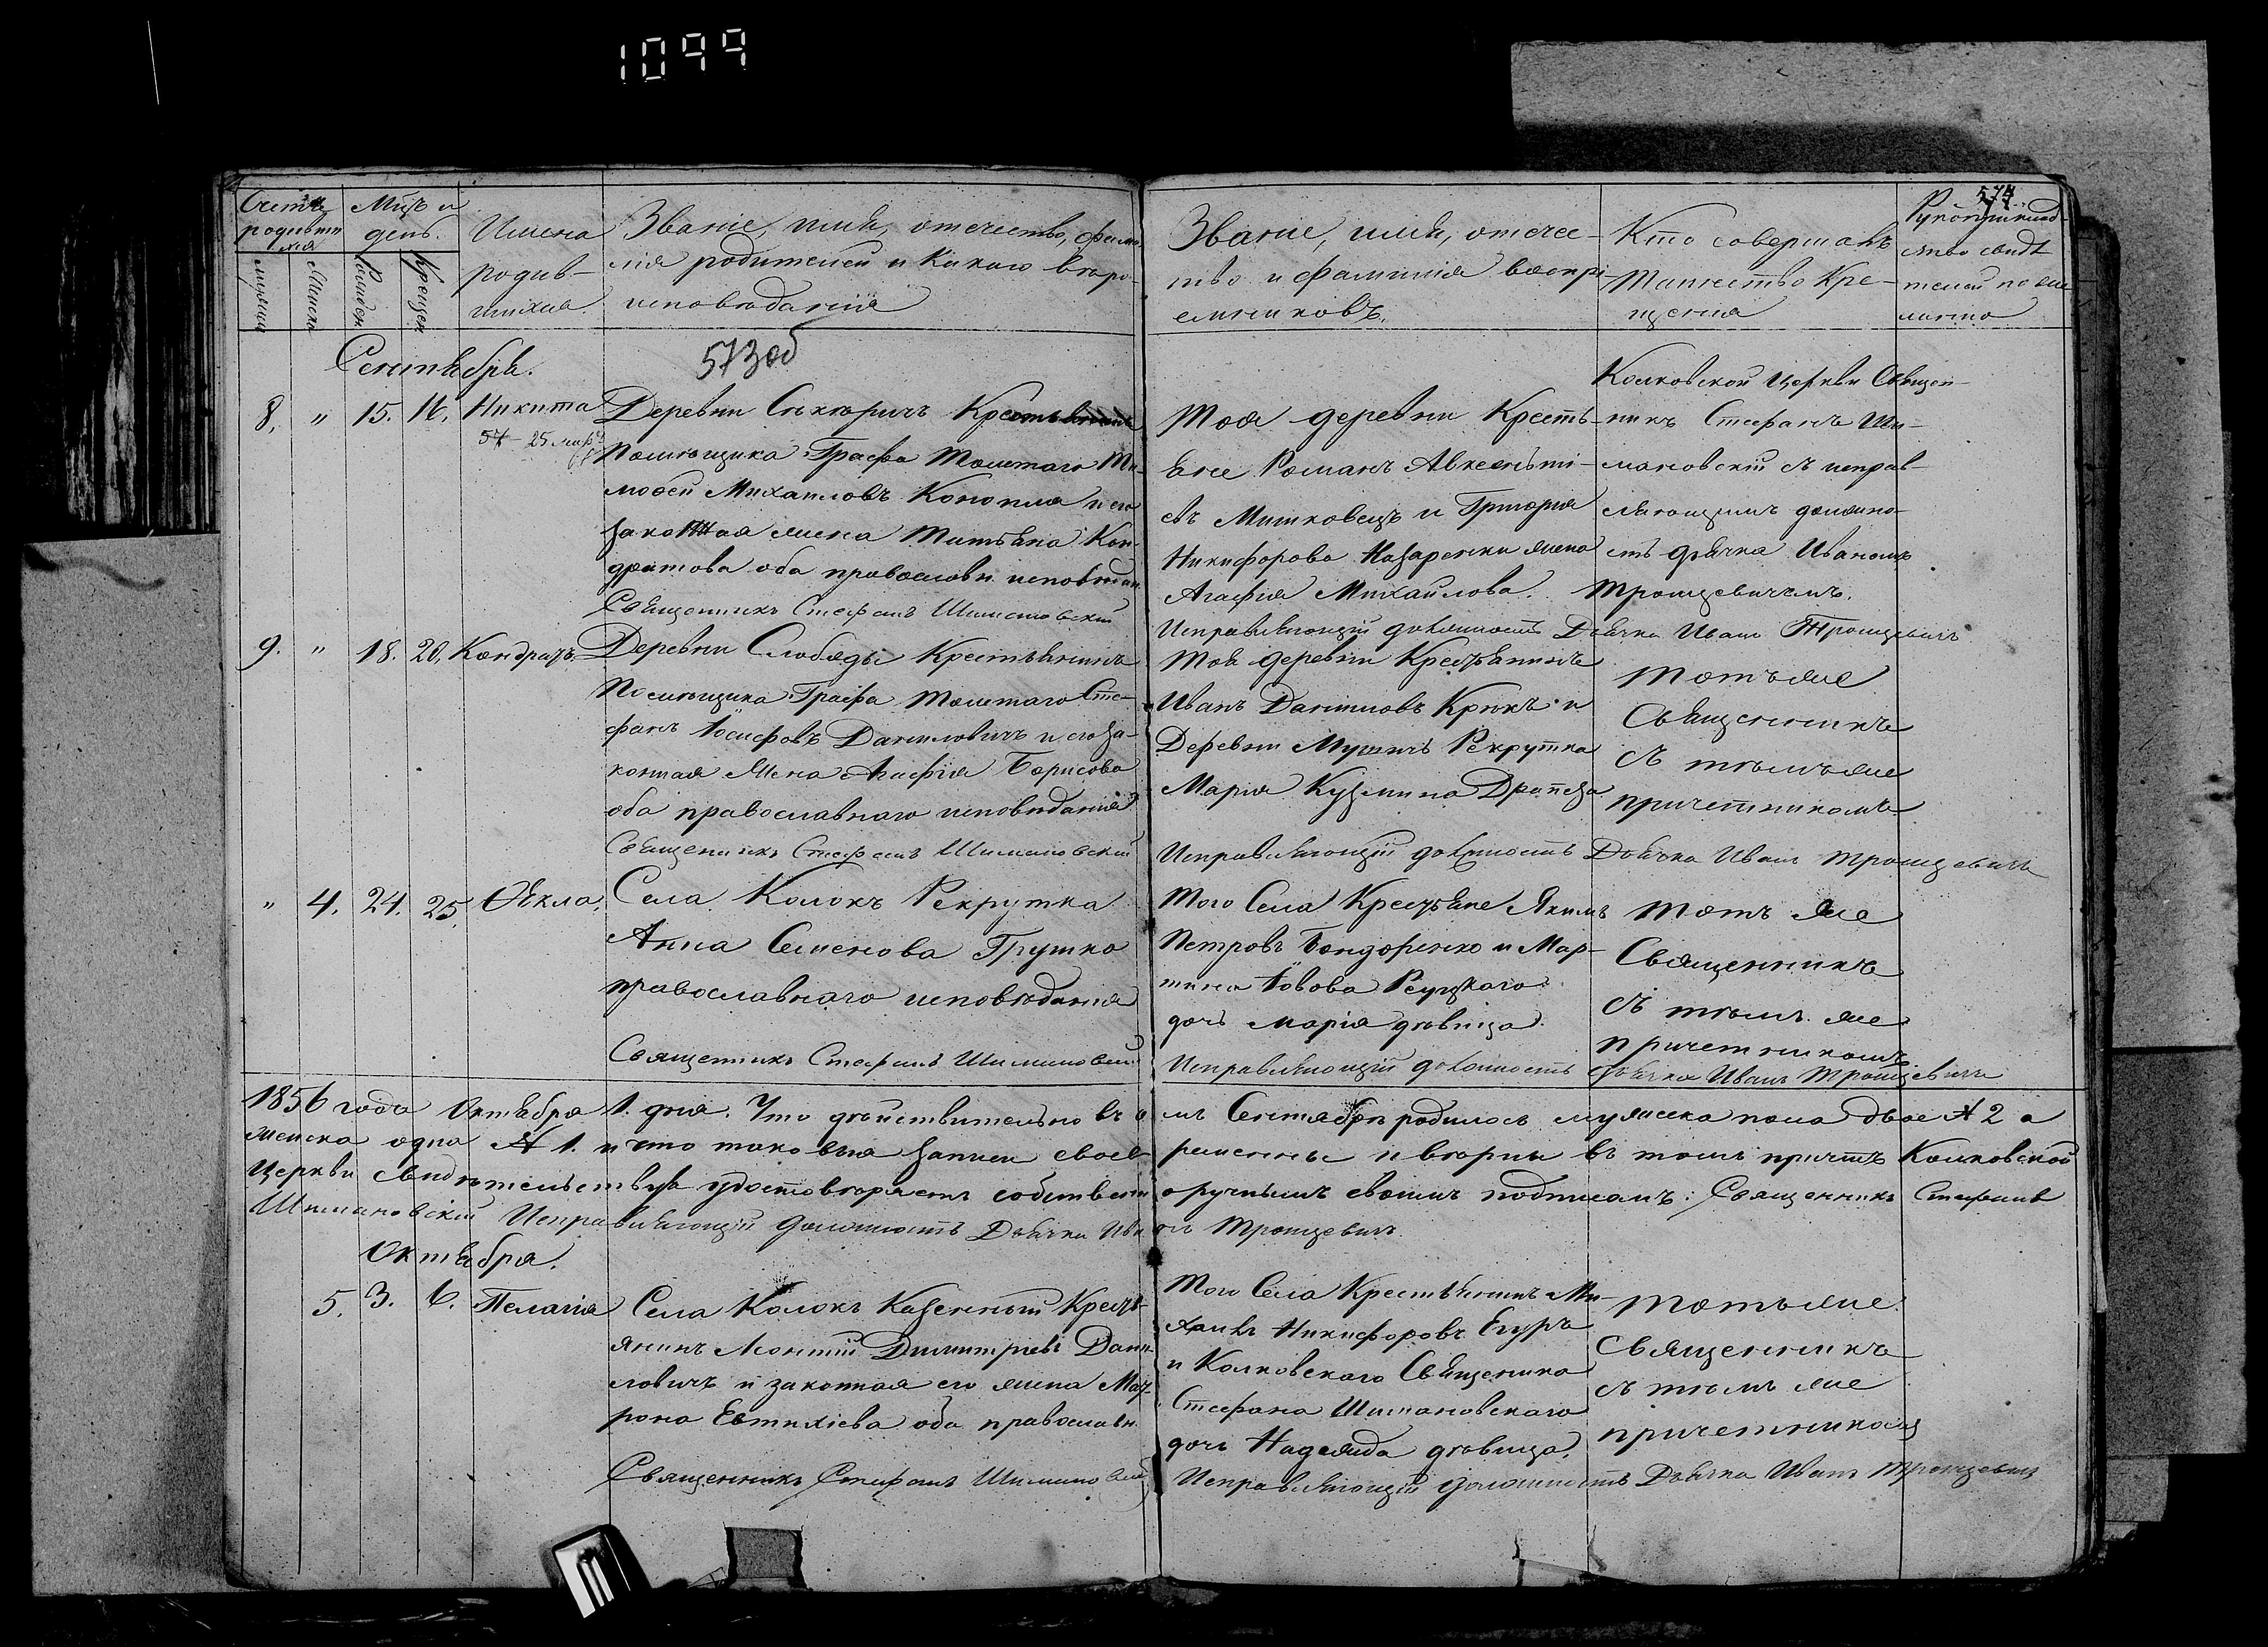 1099
574
Счетъ родившихся
Мѣсяцъ и день.
Имена родив-
шихся.
Званіе, имя, отечество, фами-
лія родителей и какого вѣро-
исповѣданія
Званіе, имя, отече-
ство и фамилія воспрі-
емниковъ.
Кто совершалъ
Таинство Кре-
щенія
Рукоприклад-
ство свидѣ
телей по же
ланію
Женска
Крещен
Сентября.
573об
8. " 15. 16. Никита
57 - 25 марта
Деревни Крестьянинъ
Помѣщика Графа Толстаго Ти-
мофей Михаиловъ Конопля и его
законная жена Татьяна Кон-
дратова оба православн. исповѣдан.
Священникъ Стефанъ Шимановскій
Тоя деревни Кресть-
яне Романъ Авксентьі-
евъ Мишковецъ и Григорія
Никифорова Назаренки жена
Агафія Михайлова.
Исправляющій должность Дьячка Иванъ Тромцевичъ
Колковской Церкви Священ-
никъ Стефанъ Ши-
мановскій съ исправ-
ляющимъ должно-
сть дьячка Иваномъ
Тромцевичемъ.
9. " 18. 20. Кондратъ.
Деревни Слободы Крестьянинъ
Помѣщика Графа Толстаго Сте-
фанъ Іосифовъ Даниловичъ и его за-
конная жена Агафія Борисова
оба православнаго исповѣданія
Священникъ Стефанъ Шимановскій
Тоя деревни Крестьянинъ
Иванъ Даниловъ Крюкъ и
Деревни Рекрутка
Марія Кузмина
Исправляющій должность Дьячка Иванъ Тромцевичъ
Тотъ же
Священникъ
съ тѣмъ же
причетникомъ
" 4. 24. 25. Ѳекла.
Села Колокъ Рекрутка
Анна Семенова Грушко
православнаго исповѣданія
Священникъ Стефанъ Шимановскій
Того Села Крестьяне Якимъ
Петровъ Бондоренко и Мар-
тина Іовова
дочь Марія дѣвица.
Исправляющій должность Дьячка Иванъ Тромцевичъ
Тотъ же
Священникъ
съ тѣмъ же
причетникомъ
1856 года Октября 1. дня. Что дѣйствительно въ семъ Сентябрѣ родилось мужеска пола двое № 2 а
женска одна № 1. и что таковыя записи своевременны и вѣрны въ томъ причтъ Колковской
Церкви свидѣтельствуя удостовѣряетъ собственноручнымъ своимъ подписомъ: Священникъ Стефанъ
Шимановскій Исправляющій должность Дьячка Иванъ Тромцевичъ
Октября.
5. 3. 6. Пелагія
Села Колокъ Казенный Кресть-
янинъ Димитріевъ Дани-
ловичъ и законная его жена Мат-
рона Евтихіева оба православн.
Священникъ Стефанъ Шимановскій
Того Села Крестьянинъ Ми-
хаилъ Никифоровъ
и Колковского Священника
Стефана Шимановскаго
дочь Надежда дѣвица.
Исправляющій должность Дьячка Иванъ Тромцевичъ
Тотъ же
Священникъ
съ тѣмъ же
причетникомъ